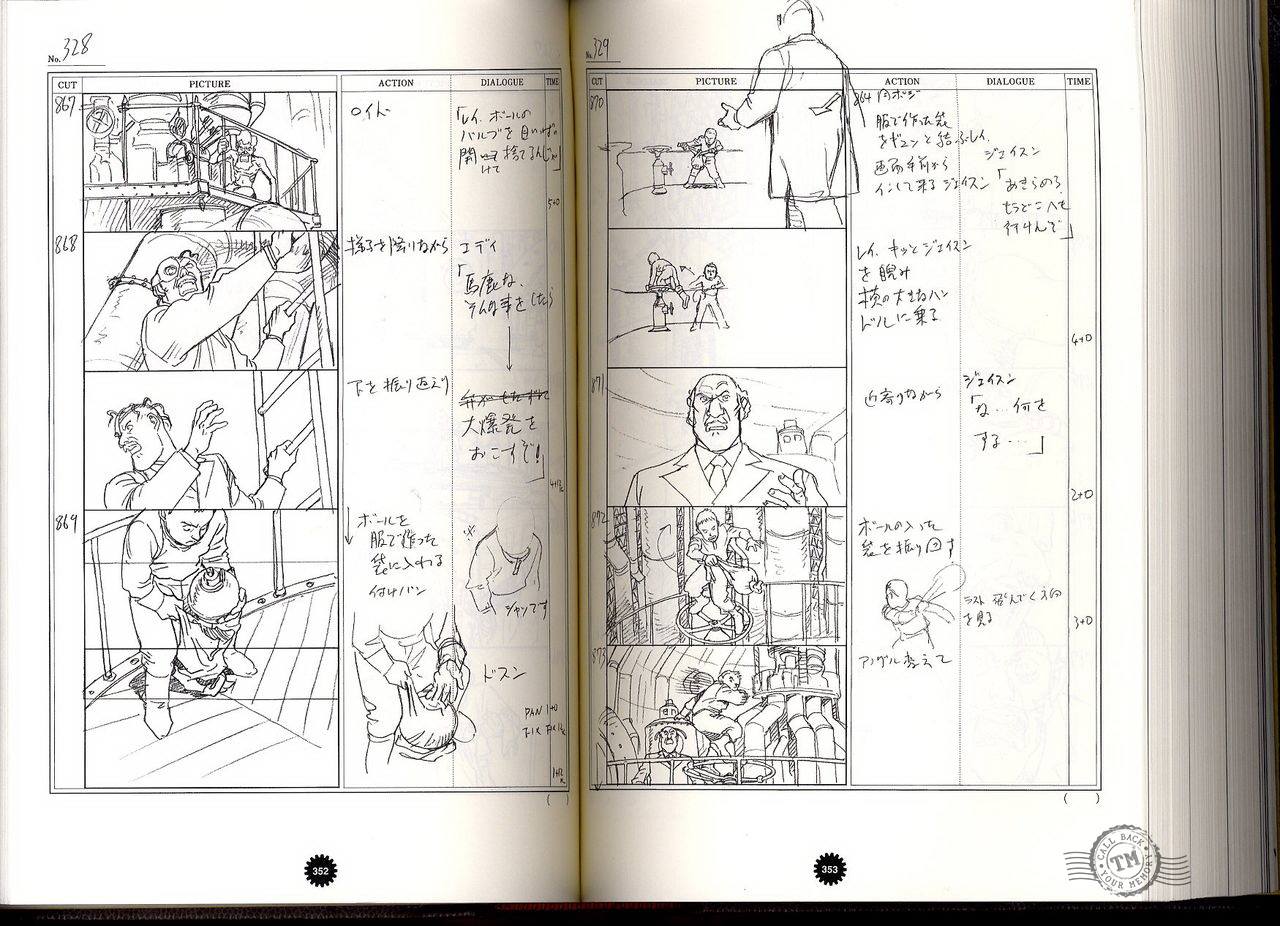 No. 328
CUT PICTURE ACTION DIALOGUE TIME
867
ロイド
「レイ、ボールの
バルブを
開けて 捨てるんじゃ」
5+0
868
梯子を降りながら
エディ
「馬鹿な、
そんな事をしたら
下を振り返り
大爆発を
おこすぞ!」
869
ボールを
服で作った
袋に入れる
シャツです
ドスン
PAN 1+0
352
No. 329
CUT PICTURE ACTION DIALOGUE TIME
870
864 同ポジ
服で作った袋
をギュンと結ぶレイ、
画面手前から
インして来る ジェイスン
ジェイスン
「あきらめろ
もうどこへも
行けんぞ」
レイ、キッとジェイスン
を睨み
横の大きなハン
ドルに乗る
4+0
871
近寄りながら
ジェイスン
「な…何を
する…」
2+0
872
ボールの入った
袋を振り回す
ラスト 飛んでく方向
を見る
3+0
873
アングル変えて
353
CALL BACK
TM
YOUR MEMORY